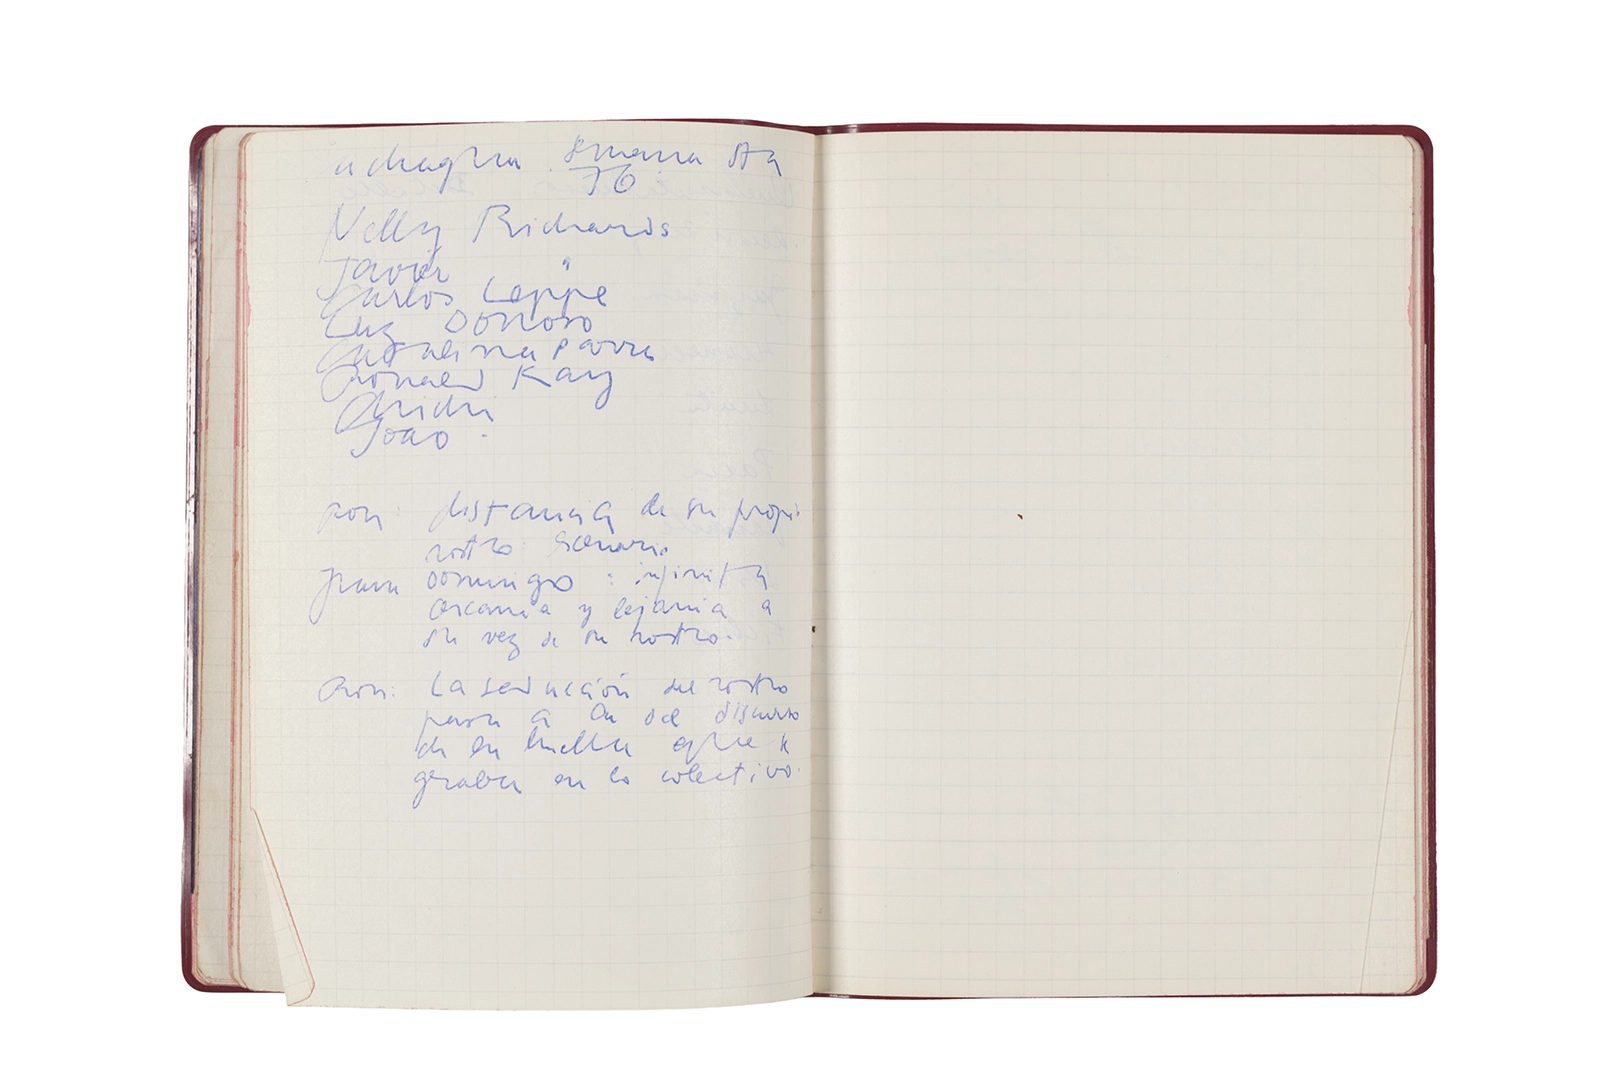 semana
76
Nelly Richards
Javier "
Carlos Leppe
Luz Donoso
Catalina Parra
Ronald Kay
Joao.
ron: distancia de su propio
rostro. Scenario.
para Domingo: infinita
cercania y lejania a
su vez de su rostro.
Ron: La seducción del rostro
pasa a la del discurso
de la huella que se
graba en lo colectivo.